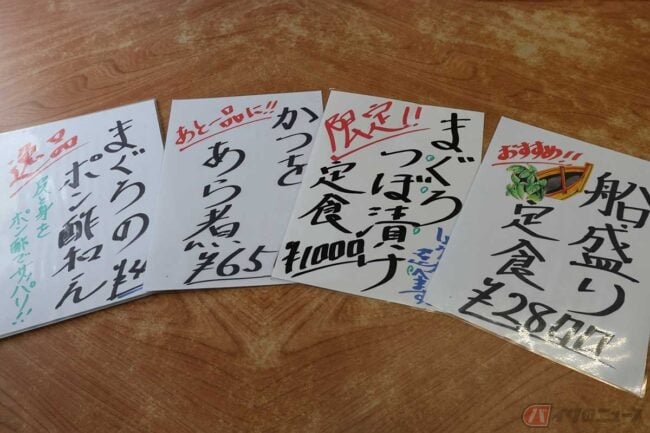 逸品
まぐろの
ポン酢和え
¥4
皮と身を
ポン酢でサッパリ!!
あと一品に!!
かつを
あら煮
¥65
限定!!
まぐろ
つぼ漬け
定食
¥1000
おすすめ!!
船盛り
定食
バイクのニュース